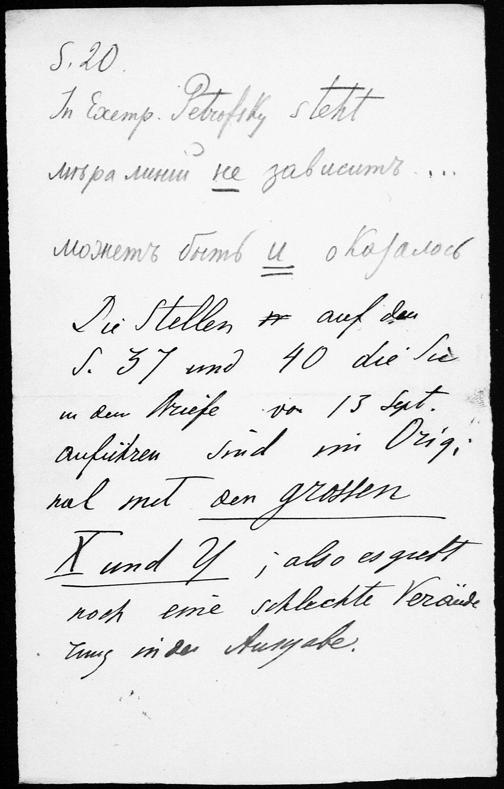 S. 20.
In Exemp. Petrofsky steht
мѣра линій не зависитъ ....
можетъ быть и оказалось
Die Stellen auf den
S. 37 und 40 die Sie
in dem Briefe von 13 Sept.
anführen sind im Origi
nal mit den grossen
X und Y ; also es giebt
noch eine schlechte Verände
rung in der Ausgabe.